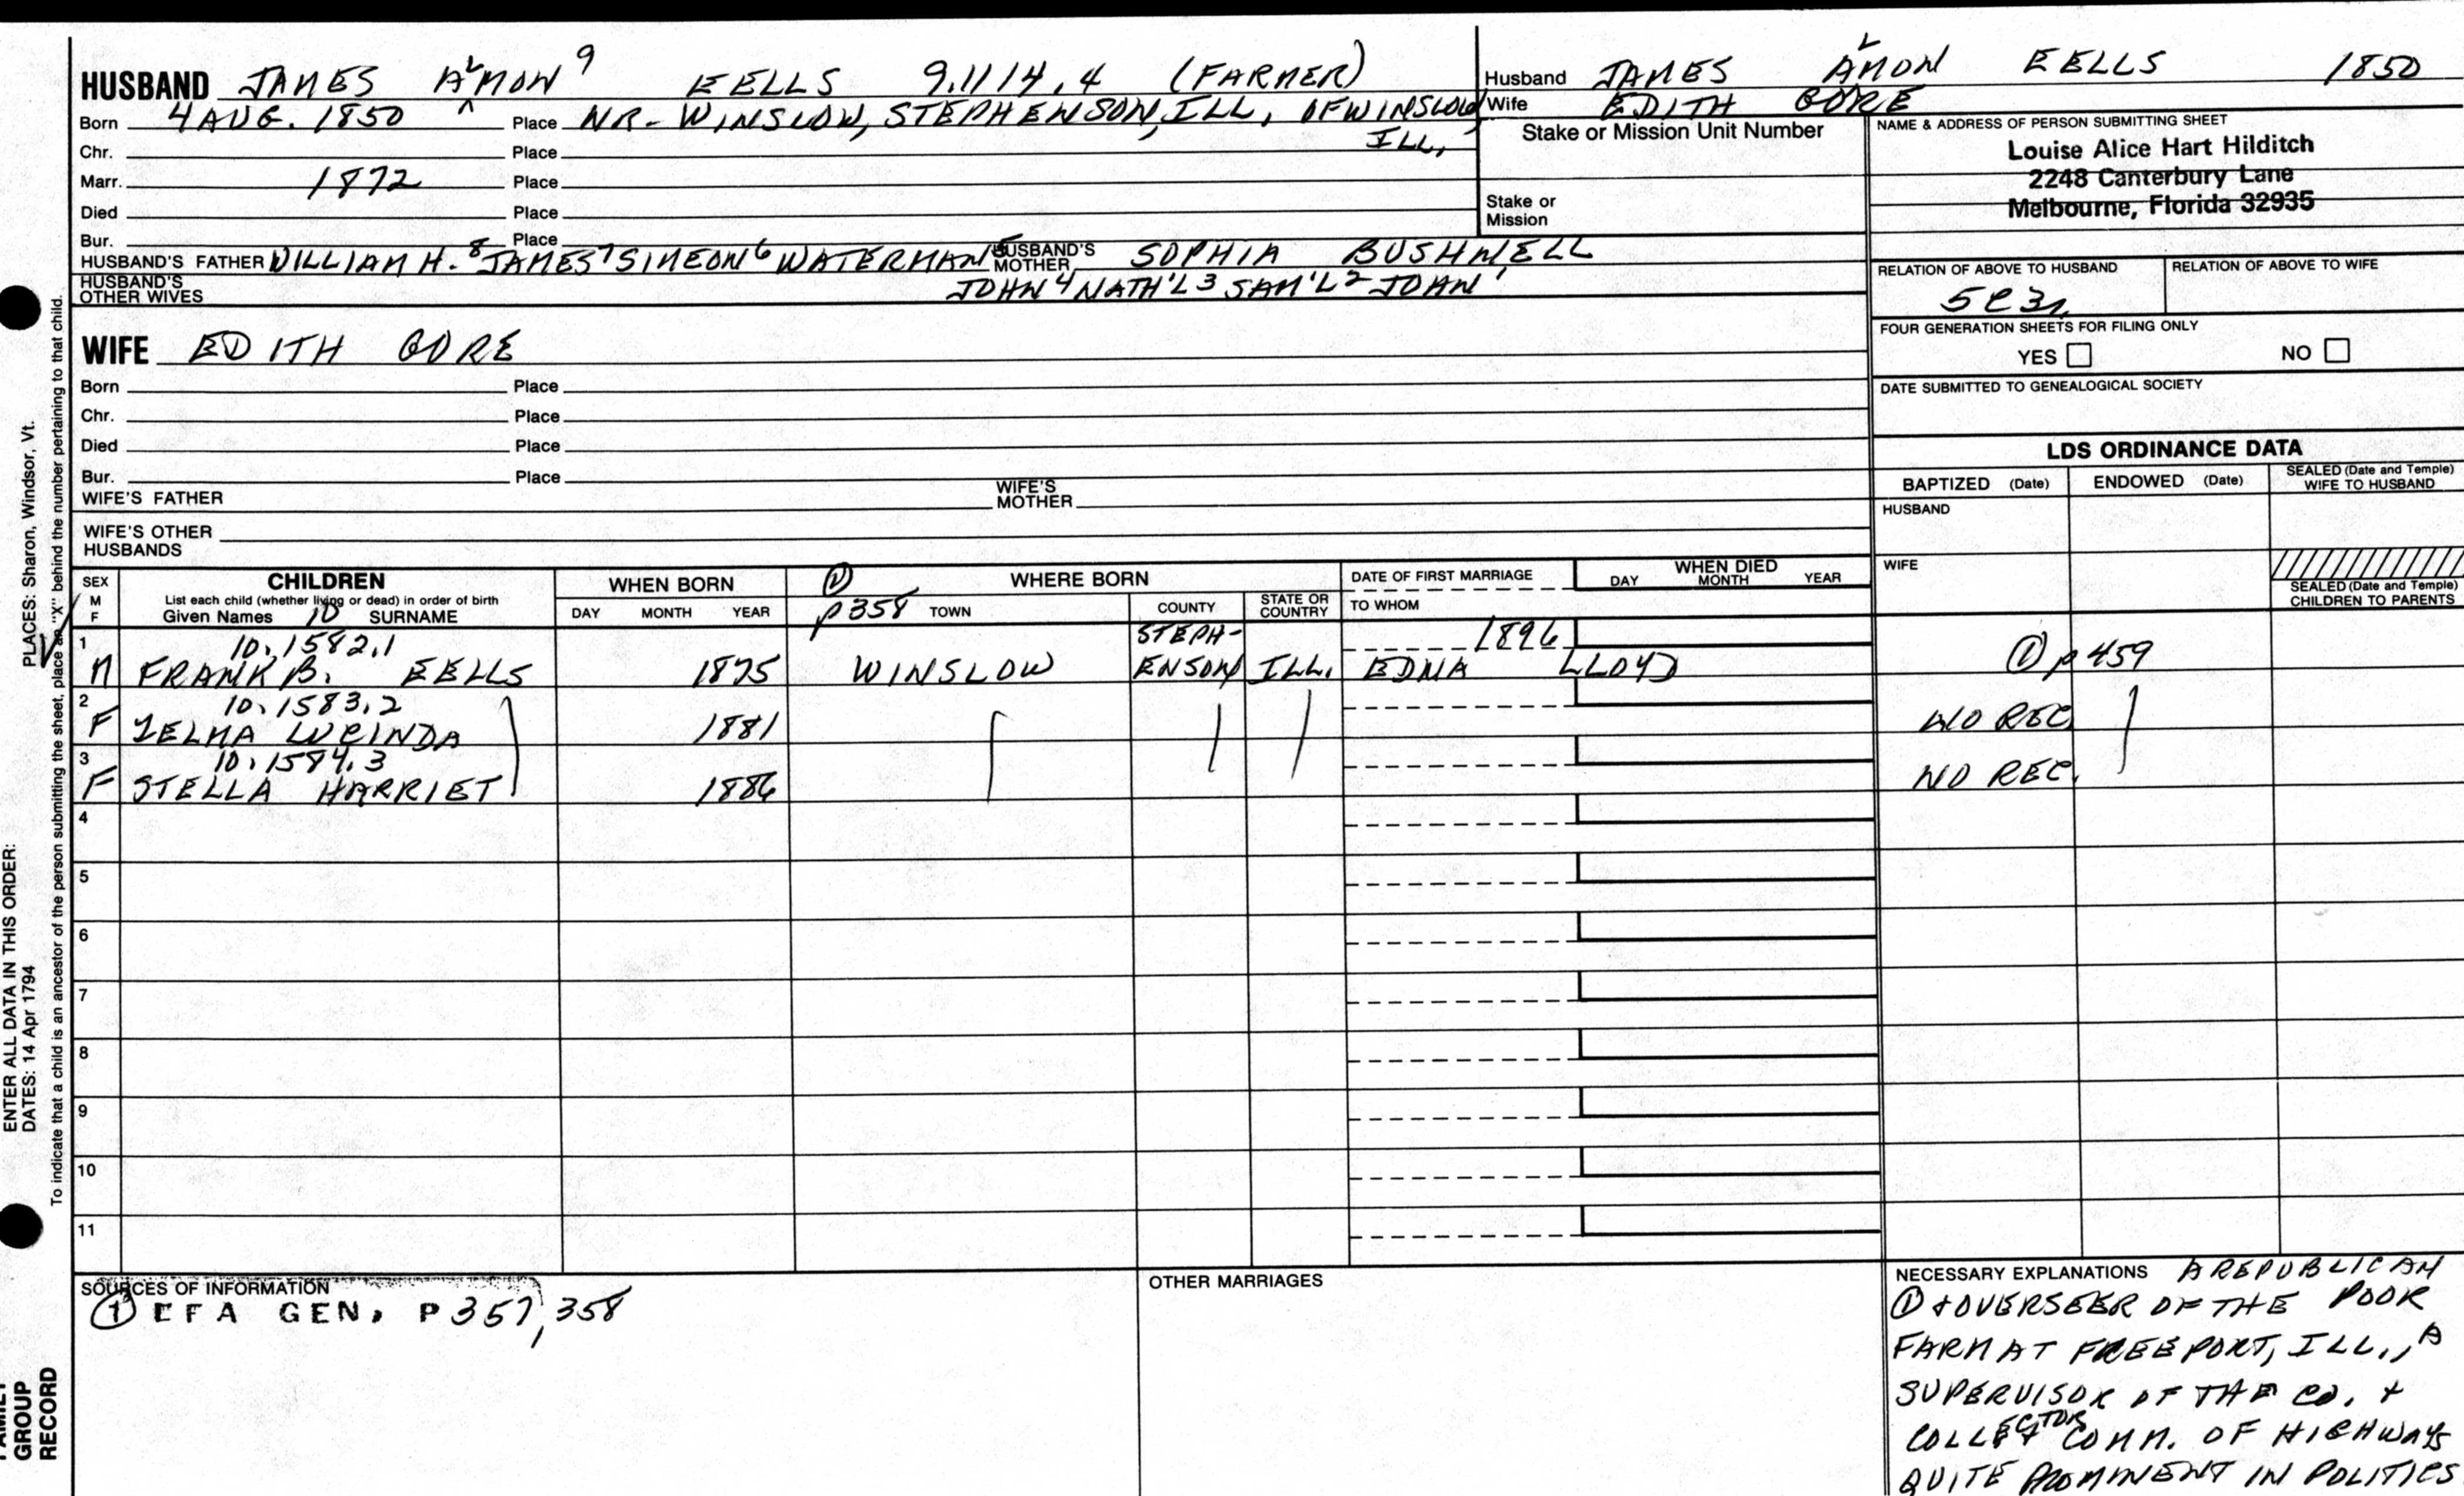 HUSBAND JAMES ALMON 9 EELLS 9.1114.4 (FARMER)
Born 4 AUG. 1850 Place NR- WINSLOW, STEPHENSON, ILL, OF WINSLOW
ILL,
Chr. Place
Marr. 1872 Place
Died Place
Bur. Place
HUSBAND'S FATHER WILLIAM H. 8 JAMES 7 SIMEON 6 WATERMAN 5 HUSBAND'S MOTHER SOPHIA BUSHNELL
HUSBAND'S OTHER WIVES JOHN 4 NATH'L 3 SAM'L 2 JOHN 1
WIFE EDITH GORE
Born Place
Chr. Place
Died Place
Bur. Place
WIFE'S FATHER WIFE'S MOTHER
WIFE'S OTHER HUSBANDS
Husband JAMES ALMON EELLS 1850
Wife EDITH GORE
Stake or Mission Unit Number
Stake or Mission
NAME & ADDRESS OF PERSON SUBMITTING SHEET
Louise Alice Hart Hilditch
2248 Canterbury Lane
Melbourne, Florida 32935
RELATION OF ABOVE TO HUSBAND RELATION OF ABOVE TO WIFE
5C3r
FOUR GENERATION SHEETS FOR FILING ONLY
YES NO
DATE SUBMITTED TO GENEALOGICAL SOCIETY
LDS ORDINANCE DATA
BAPTIZED (Date) ENDOWED (Date) SEALED (Date and Temple) WIFE TO HUSBAND
HUSBAND
WIFE
SEALED (Date and Temple) CHILDREN TO PARENTS
SEX M F
CHILDREN
List each child (whether living or dead) in order of birth
Given Names 10 SURNAME
WHEN BORN
DAY MONTH YEAR
① WHERE BORN
p358 TOWN COUNTY STATE OR COUNTRY
DATE OF FIRST MARRIAGE
TO WHOM
WHEN DIED
DAY MONTH YEAR
1 10.1582.1 STEPH- 1896
M FRANK B. EELLS 1875 WINSLOW ENSON ILL. EDNA LLOYD ① p459
2 10.1583.2
F ZELMA LURINDA 1881 NO REC
3 10.1584.3
F STELLA HARRIET 1886 NO REC.
4
5
6
7
8
9
10
11
SOURCES OF INFORMATION
① EFA GEN, P 357, 358
OTHER MARRIAGES
NECESSARY EXPLANATIONS A REPUBLICAN
① & OVERSEER OF THE POOR
FARM AT FREEPORT, ILL., A
SUPERVISOR OF THE CO. +
COLLECTOR COMM. OF HIGHWAYS
QUITE PROMINENT IN POLITICS
PLACES: Sharon, Windsor, Vt.
ENTER ALL DATA IN THIS ORDER:
DATES: 14 Apr 1794
To indicate that a child is an ancestor of the person submitting the sheet, place an "X" behind the number pertaining to that child.
FAMILY
GROUP
RECORD